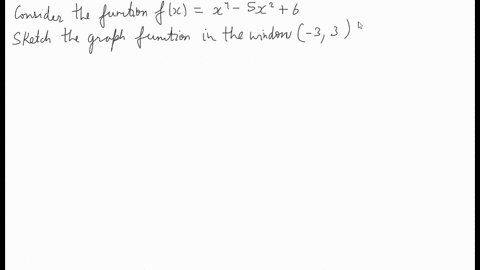 Consider the function f(x) = x⁴ - 5x² + 6
Sketch the graph function in the window (-3, 3)